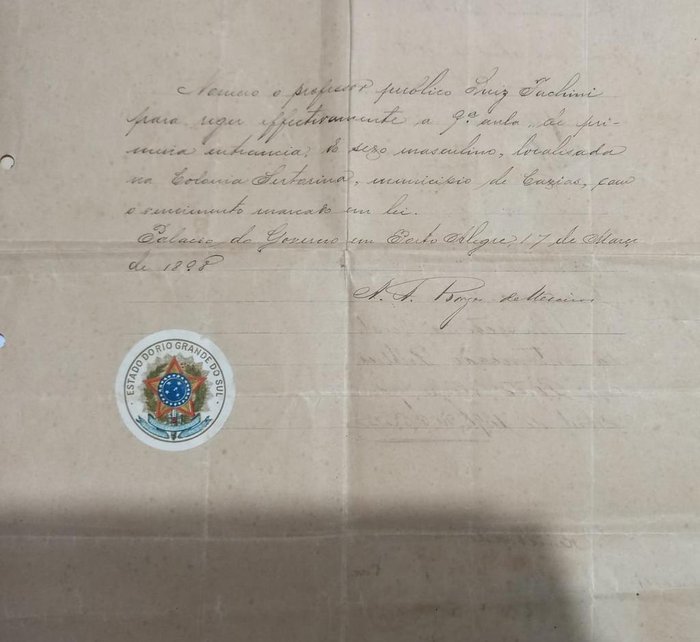 Nomeio o professor publico Luiz Fachini
para reger effectivamente a 9ª aula, de pri-
meira entrancia, do sexo masculino, localisada
na Colonia Sertorina, municipio de Caxias, com
o vencimento marcado em lei.
Palacio do Governo em Porto Alegre, 17 de Março
de 1898
A. A. Borges de Medeiros
ESTADO DO RIO GRANDE DO SUL